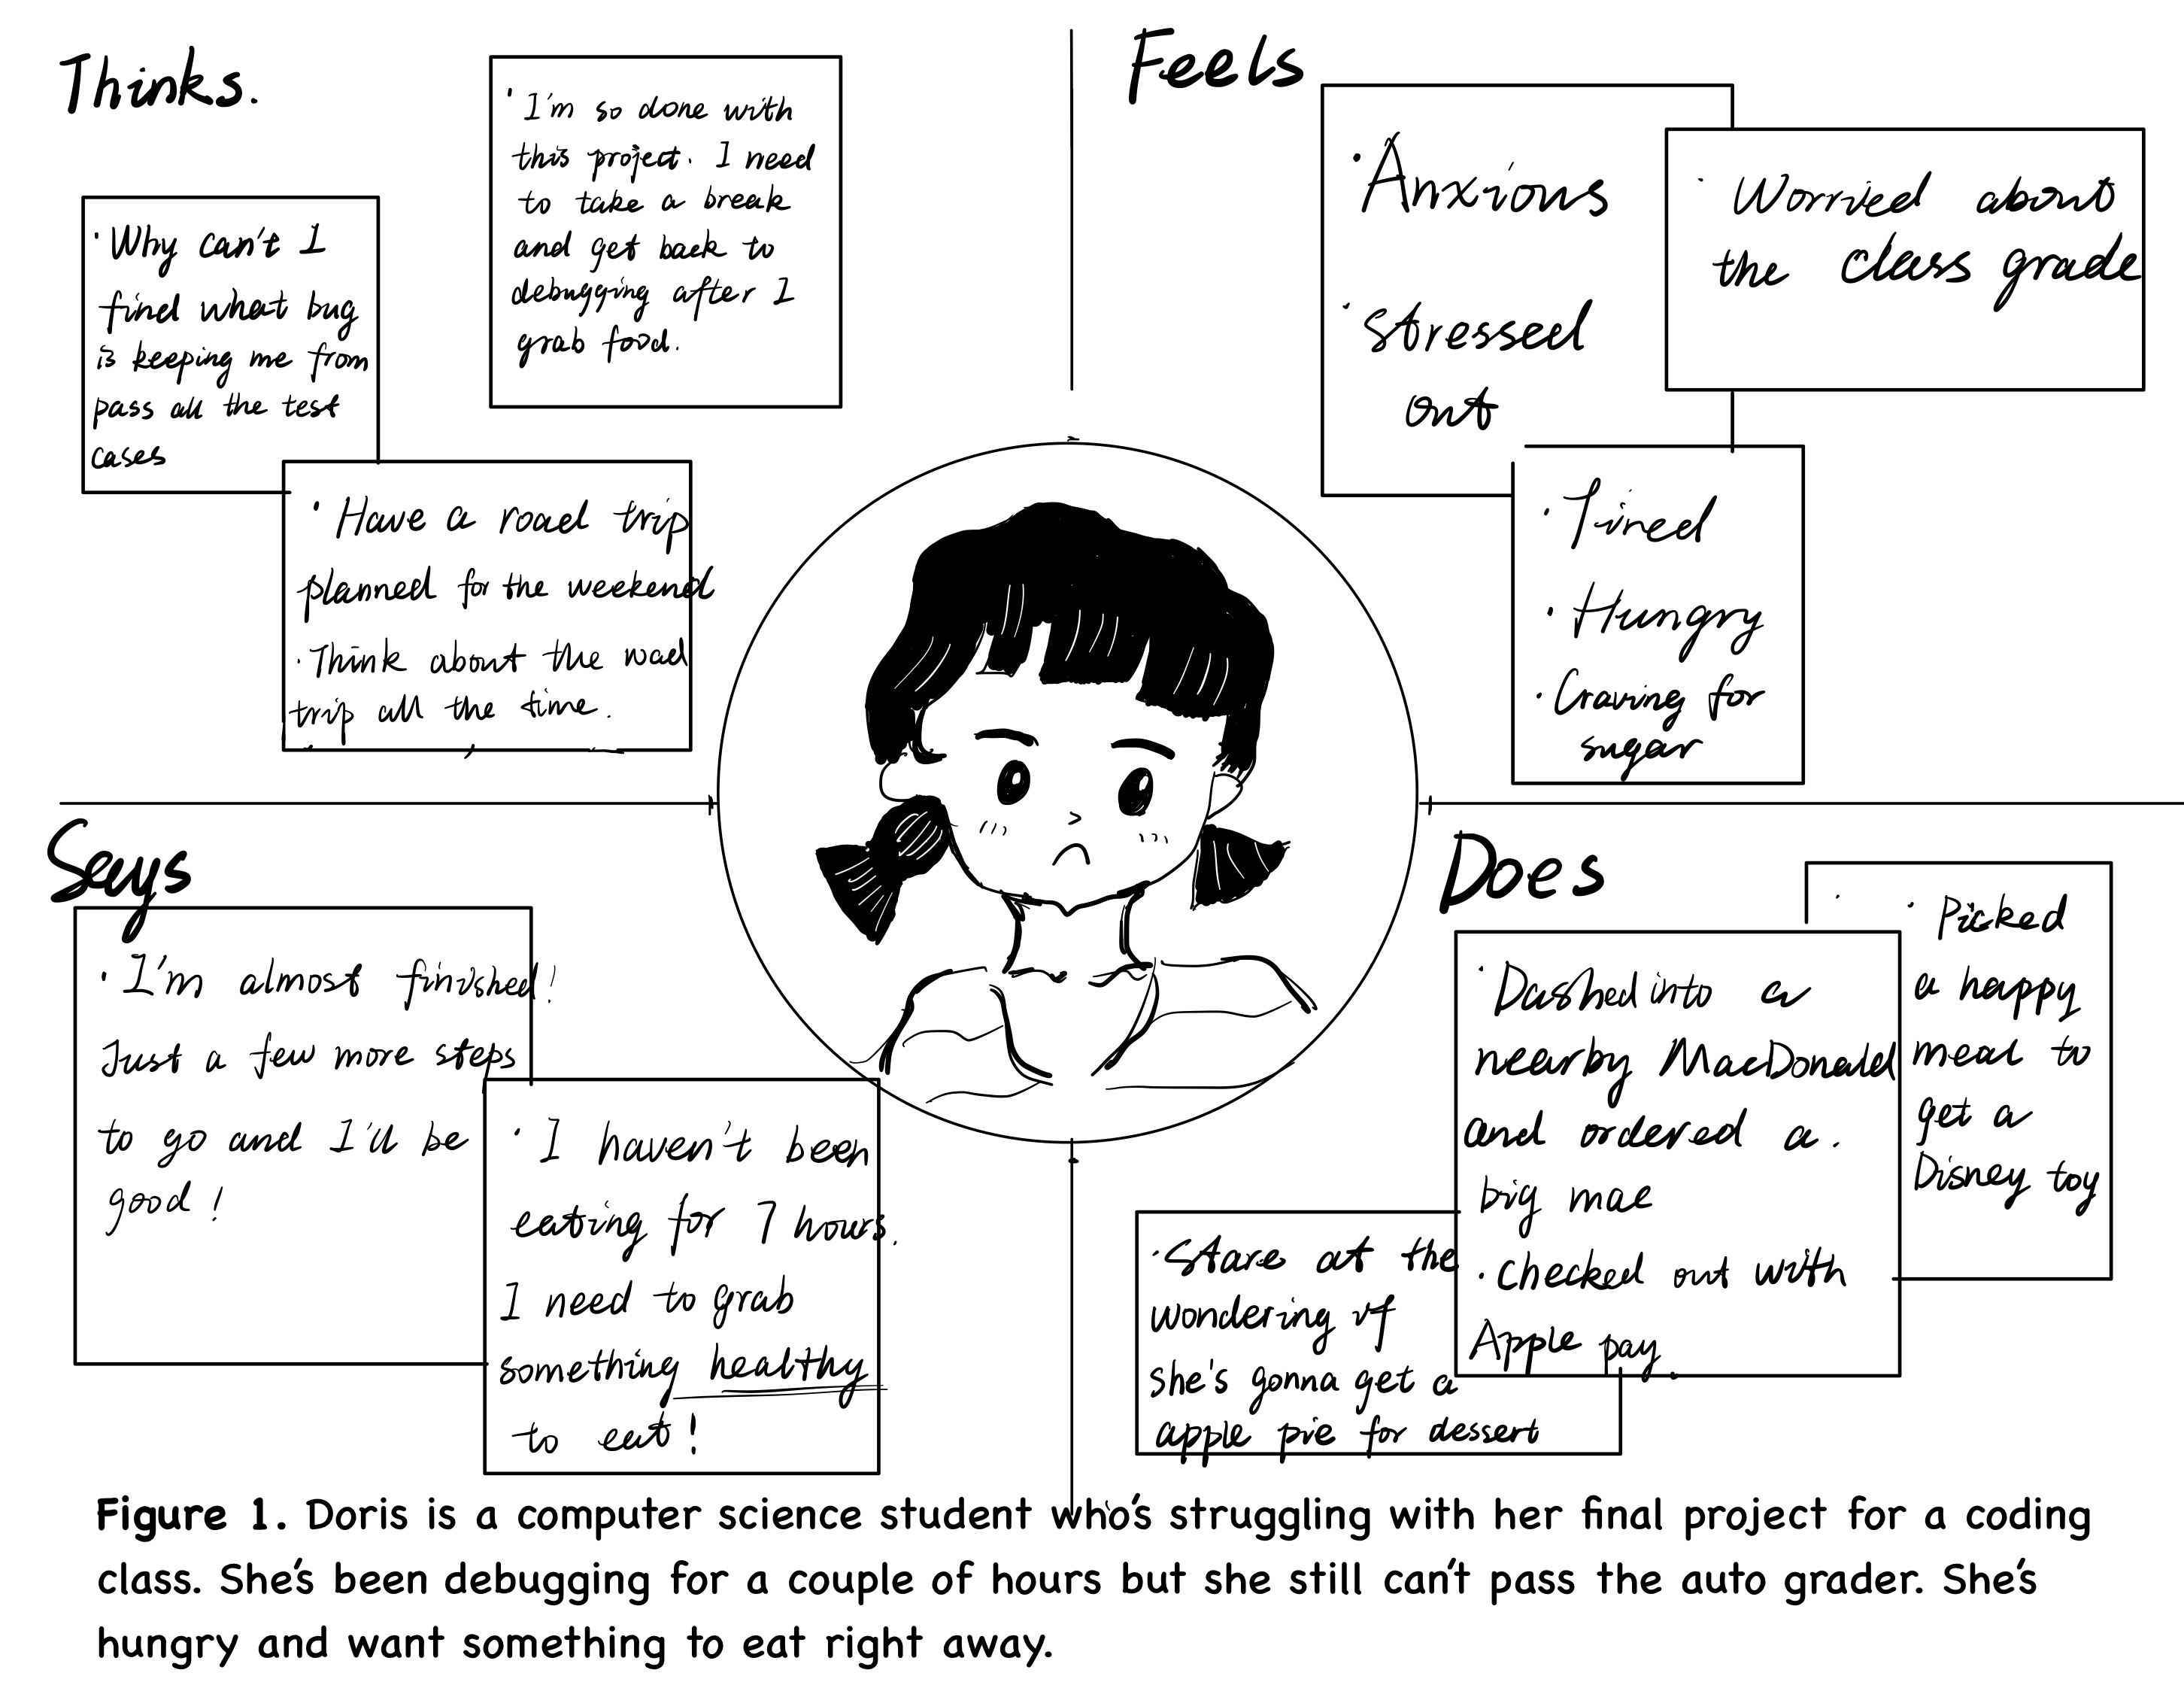 Thinks.
· Why can't I
find what bug
is keeping me from
pass all the test
cases
· I'm so done with
this project. I need
to take a break
and get back to
debugging after I
grab food.
· Have a road trip
planned for the weekend
· Think about the road
trip all the time.
Feels
· Anxious
· Stressed
out
· Worried about
the class grade
· Tired
· Hungry
· Craving for
sugar
Says
· I'm almost finished!
Just a few more steps
to go and I'll be
good!
· I haven't been
eating for 7 hours.
I need to grab
something healthy
to eat!
Does
· Dashed into a
nearby MacDonald
and ordered a.
big mac
· Checked out with
Apple pay.
· Picked
a happy
meal to
get a
Disney toy
· Stare at the
wondering if
she's gonna get a
apple pie for dessert
Figure 1. Doris is a computer science student who's struggling with her final project for a coding
class. She's been debugging for a couple of hours but she still can't pass the auto grader. She's
hungry and want something to eat right away.